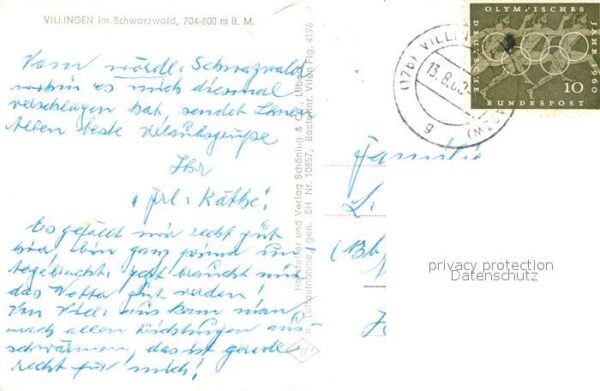 VILLINGEN im Schwarzwald, 704-800 m ü. M.
Vom nördl. Schwarzwald
wohin es mich diesmal
verschlagen hat, sendet Ihnen
Allen beste Urlaubsgrüße
Ihr
Frl. Käthe!
Es gefällt mir recht gut
hier, bin ganz prima un-
tergebracht; jetzt braucht nur
das Wetter gut werden!
Von Vill. aus kann man
nach allen Richtungen aus-
schwärmen, das ist gerade
recht für mich!
Hersteller und Verlag Schöning & Co., Lübeck
Luftaufnahme / gen. SH Nr. 10857, Bestellnr. Vibo Flg. 4196
OLYMPISCHES
JAHR 1960
DEUTSCHE
BUNDESPOST
10
(17b) VILLIN
13.8.60
g
Familie
privacy protection
Datenschutz